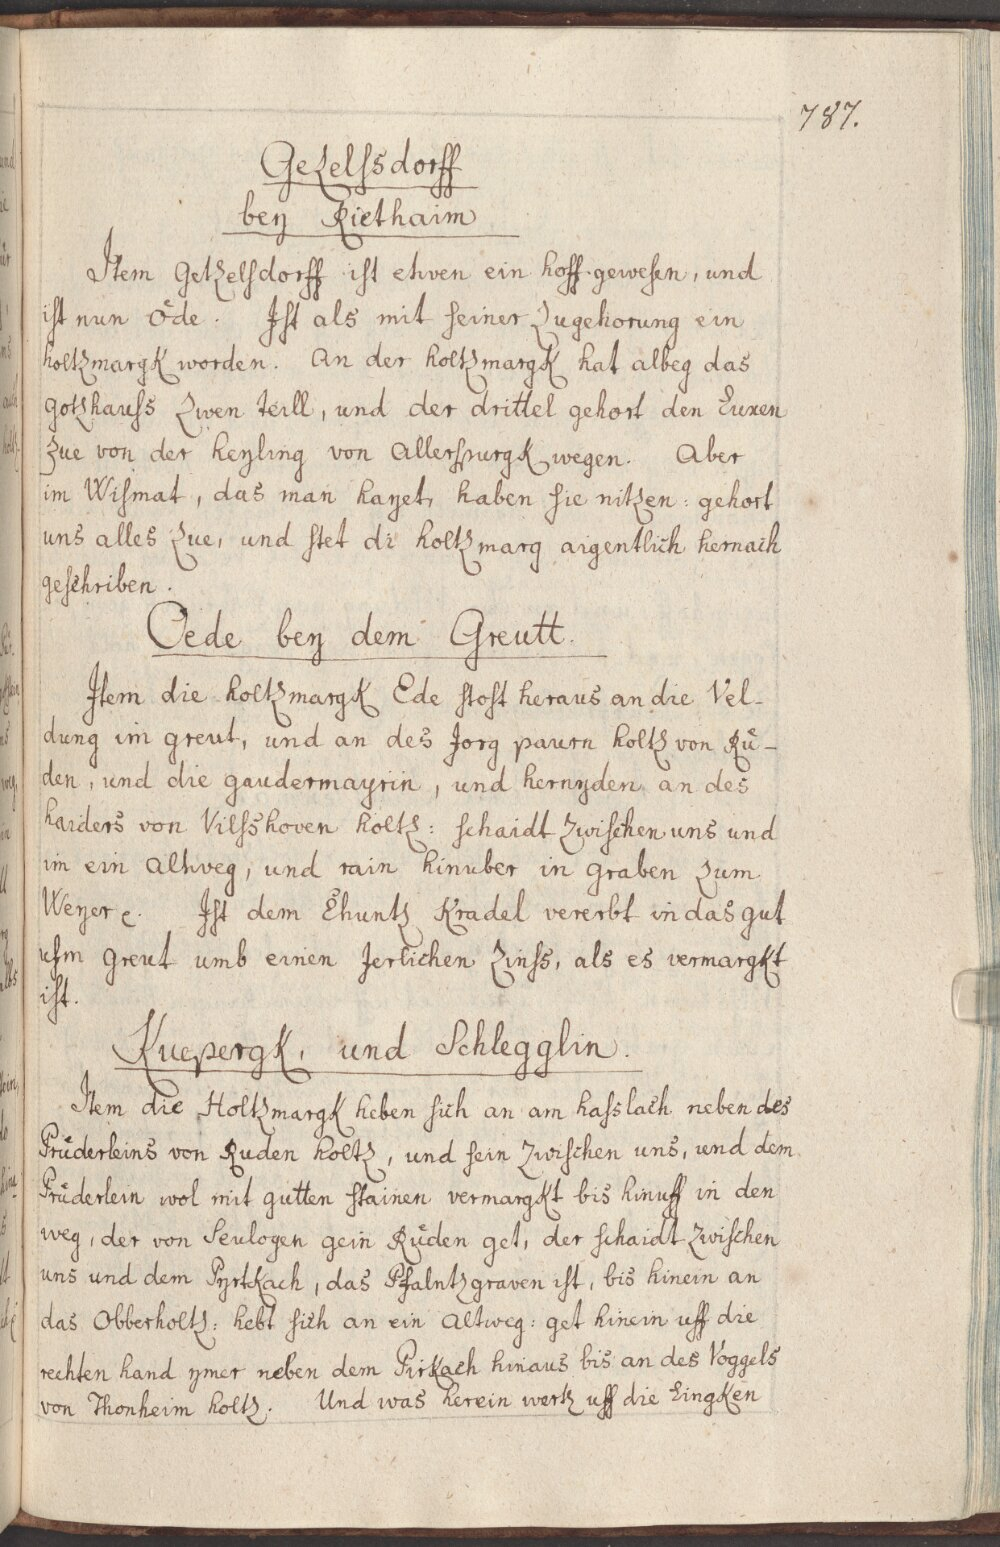 787.
Gezelssdorff
bey Riethaim
Item Getzelsdorff ist etwen ein hoff gewesen, und
ist nun öde. Ist als mit seiner Zugehorung ein
holtzmargk worden. An der holtzmargk hat albeg das
gotzhauss zwen teill, und der drittel gehort den Euxen
zue von der heyling von Allerspurgk wegen. Aber
im Wismat, das man hayet, haben sie nitzen: gehort
uns alles zue, und stet di holtzmarg aigentlich hernach
geschriben.
Oede bey dem Greutt.
Item die holtzmargk Ede stost heraus an die Vel-
dung im greut, und an des Jorg paurn holtz von Rü-
den, und die gaudermayrin, und hernyden an des
haiders von Vilsshoven holtz: schaidt zwischen uns und
im ein altweg, und rain hinuber in graben zum
Weyer. Ist dem Chuntz Kradel vererbt in das gut
ufm greut umb einen Jerlichen Zinss, als es vermargkt
ist.
Kuepergk, und Schlegglin.
Item die Holtzmargk heben sich an am hasslach neben des
Prüderleins von Ruden holtz, und sein zwischen uns, und dem
Prüderlein wol mit gutten stainen vermargkt bis hinuff in den
weg, der von Seulogen gein Rüden get, der schaidt zwischen
uns und dem Pyrtkach, das Pfalntzgraven ist, bis hinein an
das Obberholtz: hebt sich an ein altweg: get hinein uff die
rechten hand ymer neben dem Pirkach hinaus bis an des Voggels
von Thonheim holtz. Und was herein wertz uff die Lingken